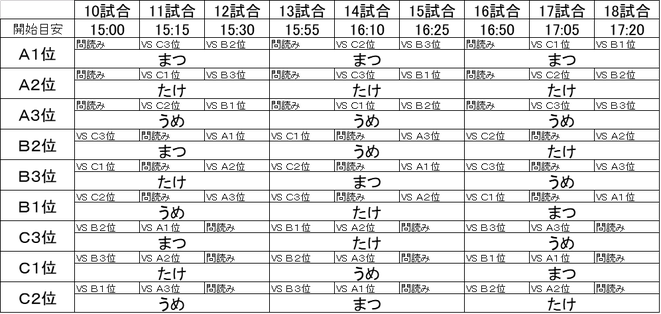 10試合 11試合 12試合 13試合 14試合 15試合 16試合 17試合 18試合
開始目安 15:00 15:15 15:30 15:55 16:10 16:25 16:50 17:05 17:20
A1位 問読み VS C3位 VS B2位 問読み VS C2位 VS B3位 問読み VS C1位 VS B1位
まつ まつ まつ
A2位 問読み VS C1位 VS B3位 問読み VS C3位 VS B1位 問読み VS C2位 VS B2位
たけ たけ たけ
A3位 問読み VS C2位 VS B1位 問読み VS C1位 VS B2位 問読み VS C3位 VS B3位
うめ うめ うめ
B2位 VS C3位 問読み VS A1位 VS C1位 問読み VS A3位 VS C2位 問読み VS A2位
まつ うめ たけ
B3位 VS C1位 問読み VS A2位 VS C2位 問読み VS A1位 VS C3位 問読み VS A3位
たけ まつ うめ
B1位 VS C2位 問読み VS A3位 VS C3位 問読み VS A2位 VS C1位 問読み VS A1位
うめ たけ まつ
C3位 VS B2位 VS A1位 問読み VS B1位 VS A2位 問読み VS B3位 VS A3位 問読み
まつ たけ うめ
C1位 VS B3位 VS A2位 問読み VS B2位 VS A3位 問読み VS B1位 VS A1位 問読み
たけ うめ まつ
C2位 VS B1位 VS A3位 問読み VS B3位 VS A1位 問読み VS B2位 VS A2位 問読み
うめ まつ たけ